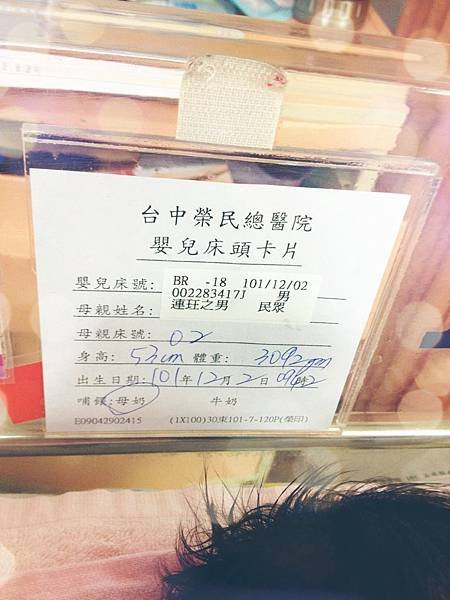 台中榮民總醫院
嬰兒床頭卡片
嬰兒床號: BR -18 101/12/02
002283417J 男
母親姓名: 連玨之男 民眾
母親床號: 02
身高: 52cm 體重: 3092gm
出生日期: 101年12月2日09時2
哺餵:母奶 牛奶
E09042902415 (1X100)30束101-7-120P(榮印)